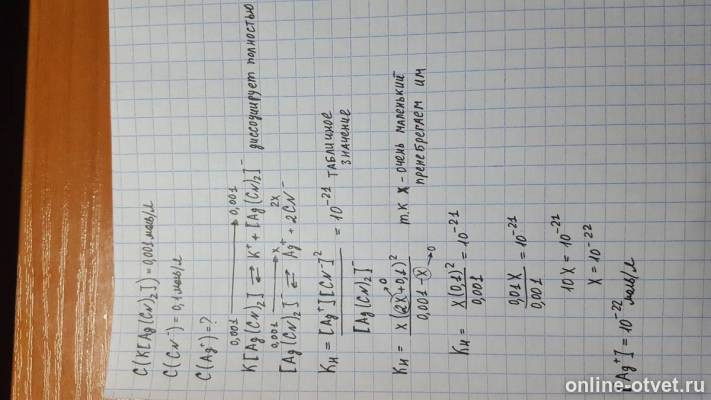 C(K[Ag(CN)₂]) = 0,001 моль/л
C(CN⁻) = 0,1 моль/л
C(Ag⁺) = ?
0,001 → 0,001
K[Ag(CN)₂] ⇄ K⁺ + [Ag(CN)₂]⁻ диссоциирует полностью
0,001 x 2x
[Ag(CN)₂]⁻ ⇄ Ag⁺ + 2CN⁻
Kн = [Ag⁺][CN⁻]² / [Ag(CN)₂]⁻ = 10⁻²¹ табличное значение
Kн = x(2x→0 + 0,1)² / 0,001 - x→0 т.к x - очень маленький пренебрегаем им
Kн = x(0,1)² / 0,001 = 10⁻²¹
0,01x / 0,001 = 10⁻²¹
10x = 10⁻²¹
x = 10⁻²²
[Ag⁺] = 10⁻²² моль/л
online-otvet.ru